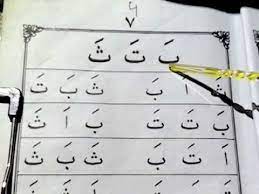 ٧
بَ تَ ثَ
اَ بَ ثَ بَ تَ
بَ تَ تَ بَ اَ ثَ
اَ تَ بَ ثَ بَ ثَ